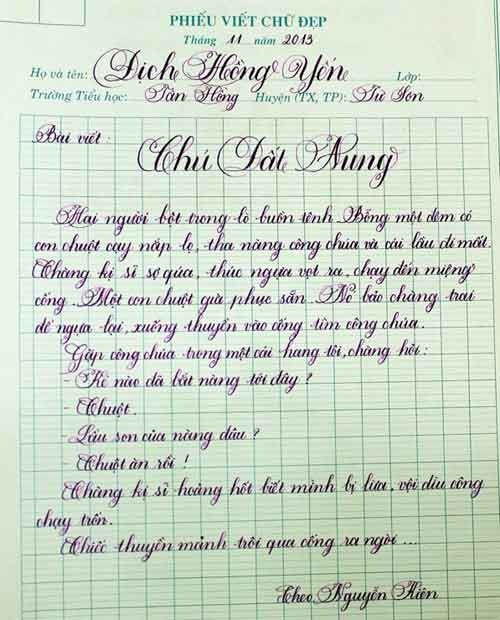 PHIẾU VIẾT CHỮ ĐẸP
Tháng 11 năm 2013
Họ và tên: Dịch Hồng Yến Lớp:
Trường Tiểu học: Tân Hồng Huyện (TX, TP): Từ Sơn
Bài viết:
Chú Đất Nung
Hai người bột trong lọ buồn tênh. Bỗng một đêm có
con chuột cạy nắp lọ, tha nàng công chúa vào cái lầu đi mất.
Chàng kị sĩ sợ quá, thúc ngựa vọt ra, chạy đến miệng
cống. Một con chuột già phục sẵn. Nó bảo chàng trai
để ngựa lại, xuống thuyền vào cống tìm công chúa.
Gặp công chúa trong một cái hang tối, chàng hỏi:
- Kẻ nào đã bắt nàng tới đây ?
- Chuột.
- Lầu son của nàng đâu ?
- Chuột ăn rồi !
Chàng kị sĩ hoảng hốt biết mình bị lừa, vội dìu công
chạy trốn.
Chiếc thuyền mảnh trôi qua cống ra ngòi ...
Theo Nguyễn Kiên